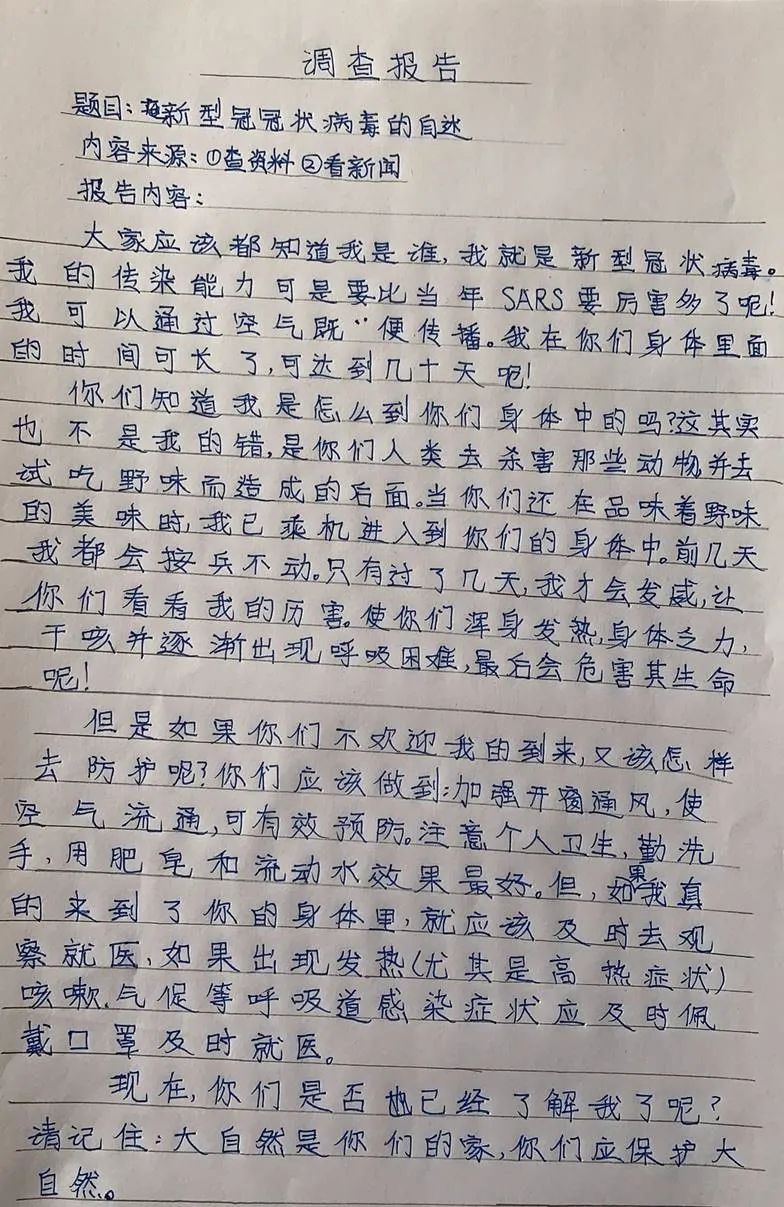 调查报告
题目:新型冠冠状病毒的自述
内容来源:①查资料②看新闻
报告内容:
大家应该都知道我是谁,我就是新型冠状病毒。
我的传染能力可是要比当年SARS要厉害多了呢!
我可以通过空气既“便传播。我在你们身体里面
的时间可长了,可达到几十天呢!
你们知道我是怎么到你们身体中的吗?这其实
也不是我的错,是你们人类去杀害那些动物并去
试吃野味而造成的后面。当你们还在品味着野味
的美味时,我已乘机进入到你们的身体中。前几天
我都会按兵不动。只有过了几天,我才会发威,让
你们看看我的历害。使你们浑身发热,身体乏力,
干咳并逐渐出现呼吸困难,最后会危害其生命
呢!
但是如果你们不欢迎我的到来,又该怎样
去防护呢?你们应该做到:加强开窗通风,使
空气流通,可有效预防。注意个人卫生,勤洗
手,用肥皂和流动水效果最好。但,如果我真
的来到了你的身体里,就应该及时去观
察就医,如果出现发热(尤其是高热症状)
咳嗽、气促等呼吸道感染症状应及时佩
戴口罩及时就医。
现在,你们是否也已经了解我了呢?
请记住:大自然是你们的家,你们应保护大
自然。